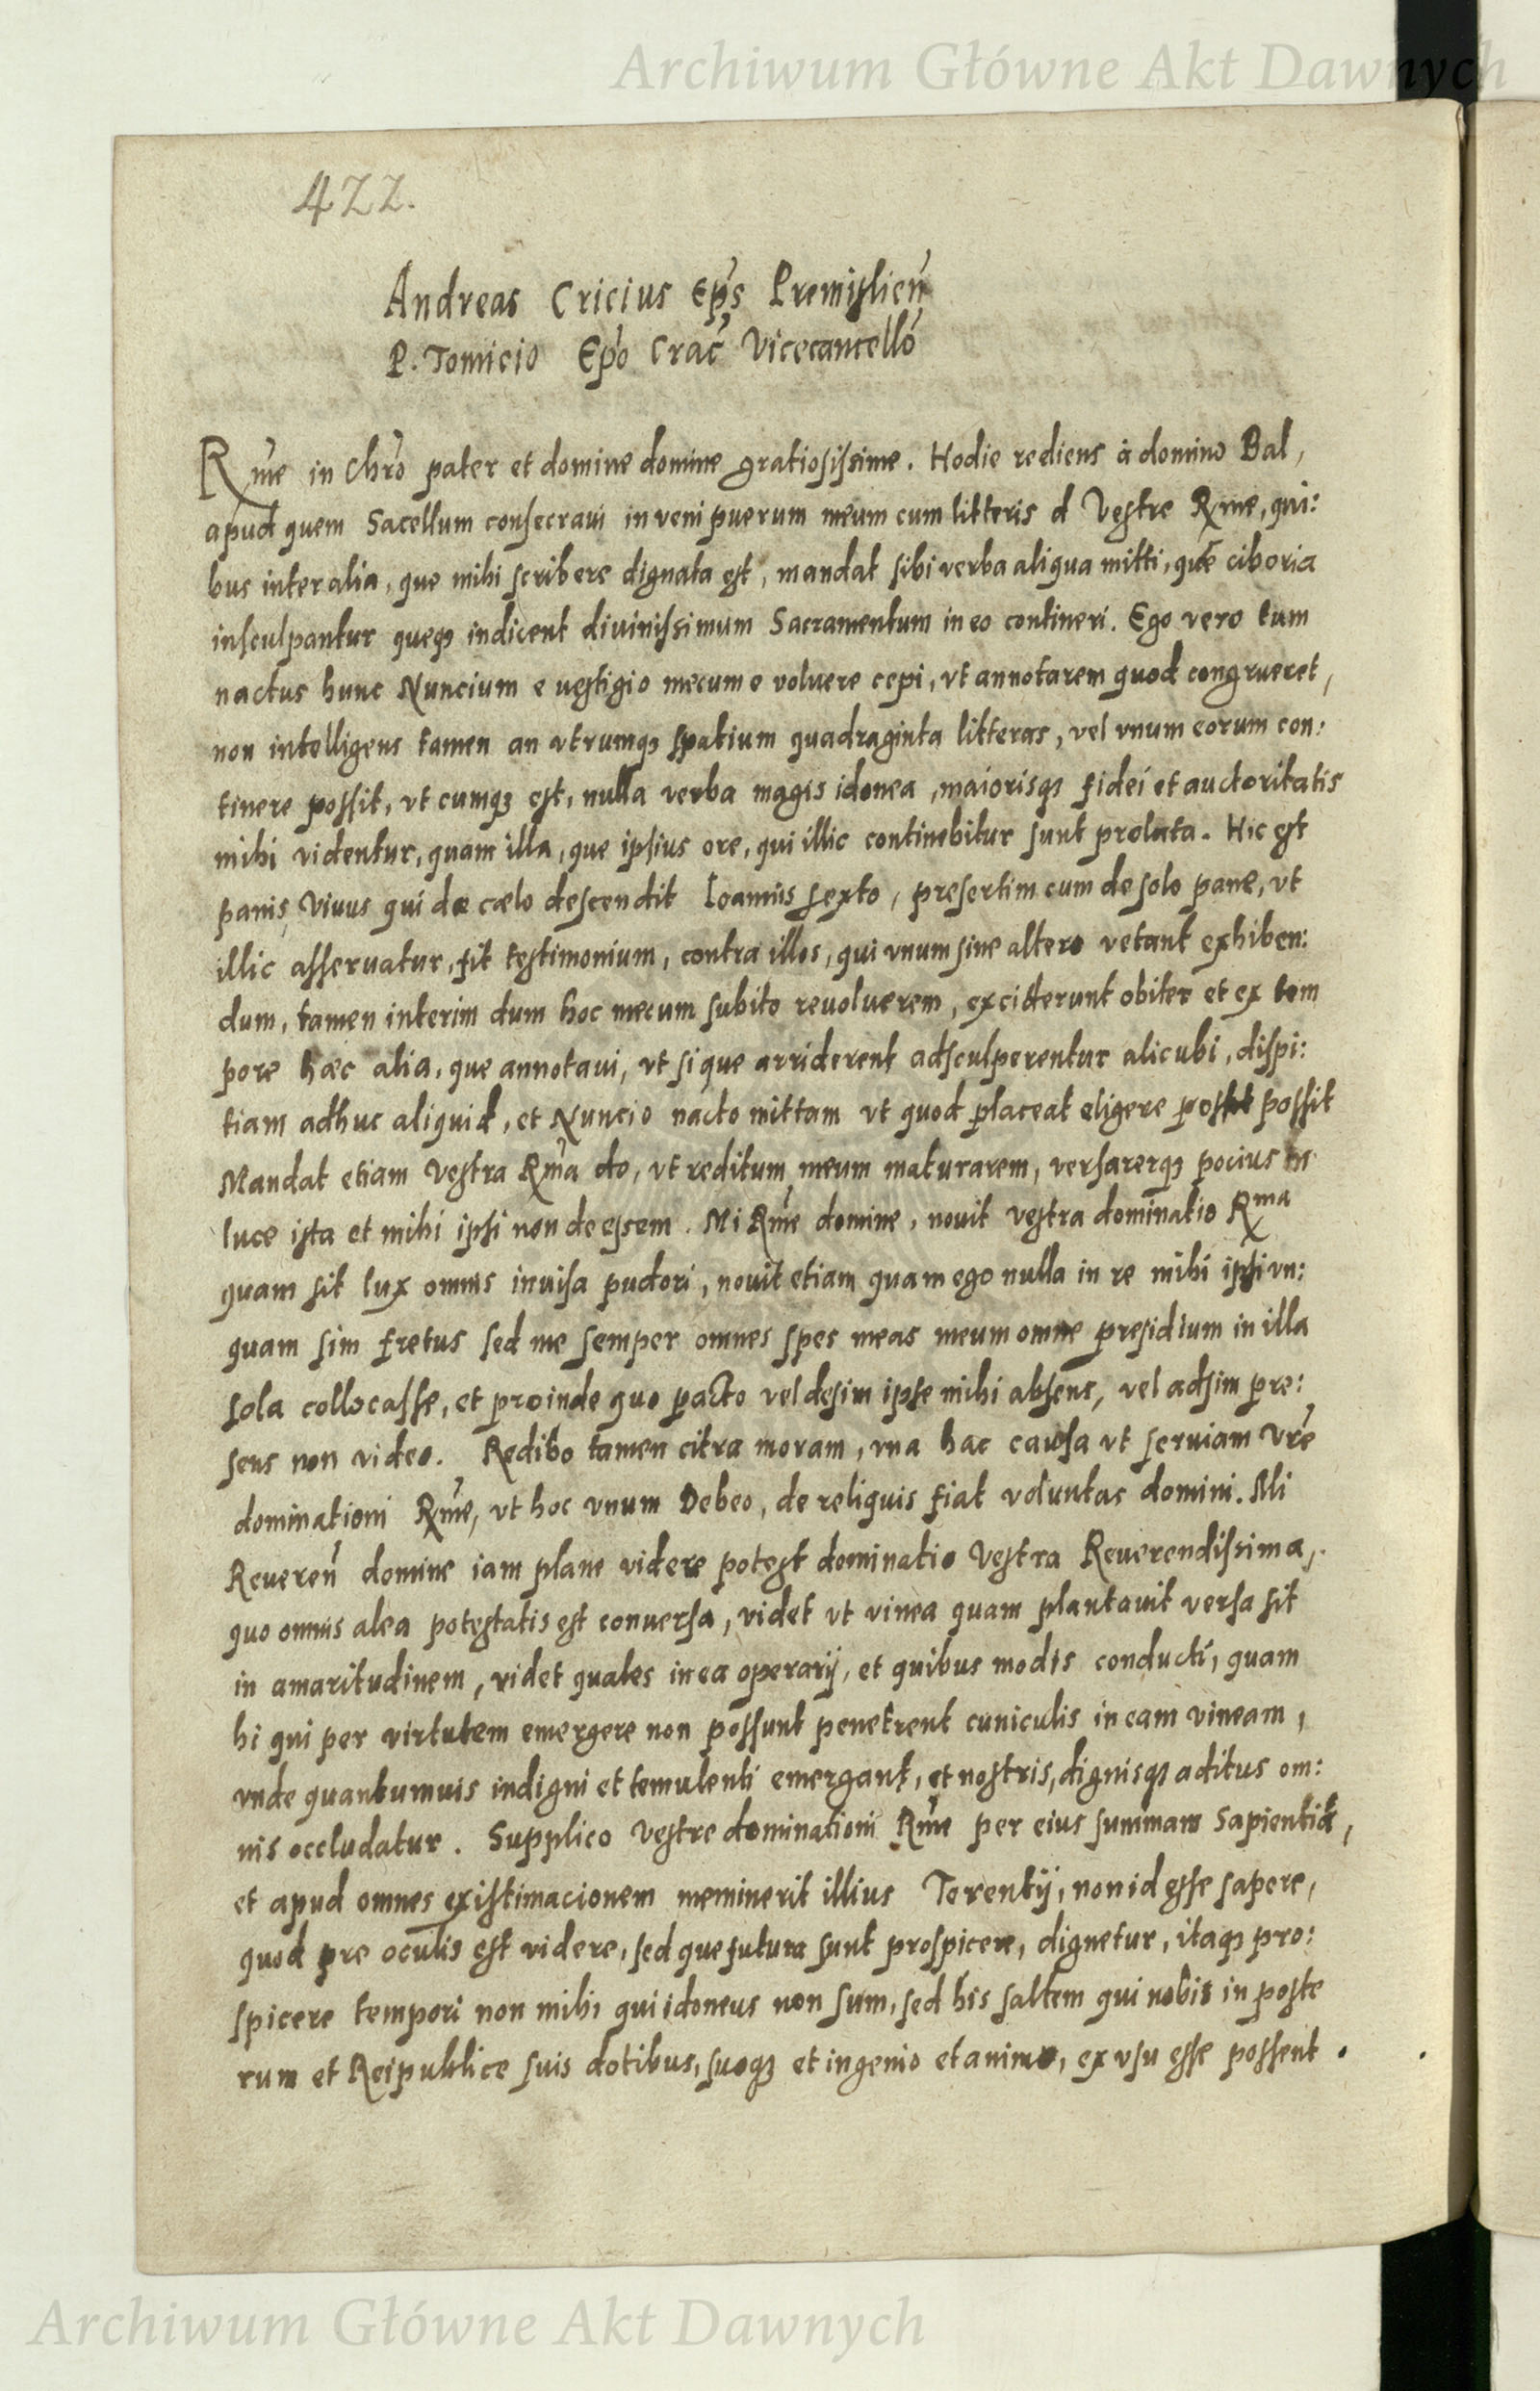 Archiwum Główne Akt Dawnych
422.
Andreas Cricius Ep̃s Premislień
P. Tomicio Ep̃o Crać Vicecancelló
Rm̃e in Chr̃o pater et domine domine gratiosissime. Hodie rediens à domino Bal,
apud quem Sacellum consecraui inveni puerum meum cum litteris d Vestre Rme, qui:
bus inter alia, que mihi scribere dignata est, mandat sibi verba aliqua mitti, que ciboria
insculpantur queqȝ indicent diuinissimum Sacramentum in eo contineri. Ego vero tum
nactus hunc Nuncium e uestigio mecum e voluere cepi, vt annotarem quod congrueret,
non intelligens tamen an vtrumqȝ spatium quadraginta litteras, vel vnum eorum con:
tinere possit, vt cumqȝ est, nulla verba magis idonea, maiorisqȝ fidei et auctoritatis
mihi videntur, quam illa, que ipsius ore, qui illic continebitur sunt prolata. Hic est
panis Viuus qui de cœlo descendit Ioannis sexto, presertim cum de solo pane, vt
illic asseruatur, fit testimonium, contra illos, qui vnum sine altero vetant exhiben:
dum, tamen interim dum hoc mecum subito reuoluerem, exciderunt obiter et ex tem
pore hæc alia, que annotaui, vt si que arriderent adsculperentur alicubi, dispi:
tiam adhuc aliquid, et Nuncio nacto mittam vt quod placeat eligere possit
Mandat etiam Vestra Rm̃a do, vt reditum meum maturarem, versarerqȝ pocius in
luce ista et mihi ipsi non deessem. Mi Rm̃e domine, nouit vestra dominatio Rma
quam sit lux omnis inuisa pudori, nouit etiam quam ego nulla in re mihi ipsi vn:
quam sim fretus sed me semper omnes spes meas meum omne presidium in illa
sola collocasse, et proinde quo pacto vel desim ipse mihi absens, vel adsim pre:
sens non video. Redibo tamen citra moram, vna hac causa vt seruiam Vr̃e
dominationi Rm̃e, vt hoc vnum Debeo, de reliquis fiat voluntas domini. Mi
Reueren̄ domine iam plane videre potest dominatio Vestra Reuerendissima,
quo omnis alea potestatis est conuersa, videt vt vinea quam plantauit versa sit
in amaritudinem, videt quales in ea operarij, et quibus modis conducti, quam
hi qui per virtutem emergere non possunt penetrent cuniculis in eam vineam,
vnde quantumuis indigni et temulenti emergant, et nostris, dignisqȝ aditus om:
nis occludatur. Supplico Vestre dominationi Rm̃e per eius summam Sapientiã,
et apud omnes existimacionem meminerit illius Terentij, non id esse sapere,
quod pre oculis est videre, sed que futura sunt prospicere, dignetur, itaqȝ pro:
spicere tempori non mihi qui idoneus non sum, sed his saltem qui nobis in poste
rum et Reipublice suis dotibus, suoqȝ et ingenio et animo, ex vsu esse possent.
Archiwum Główne Akt Dawnych